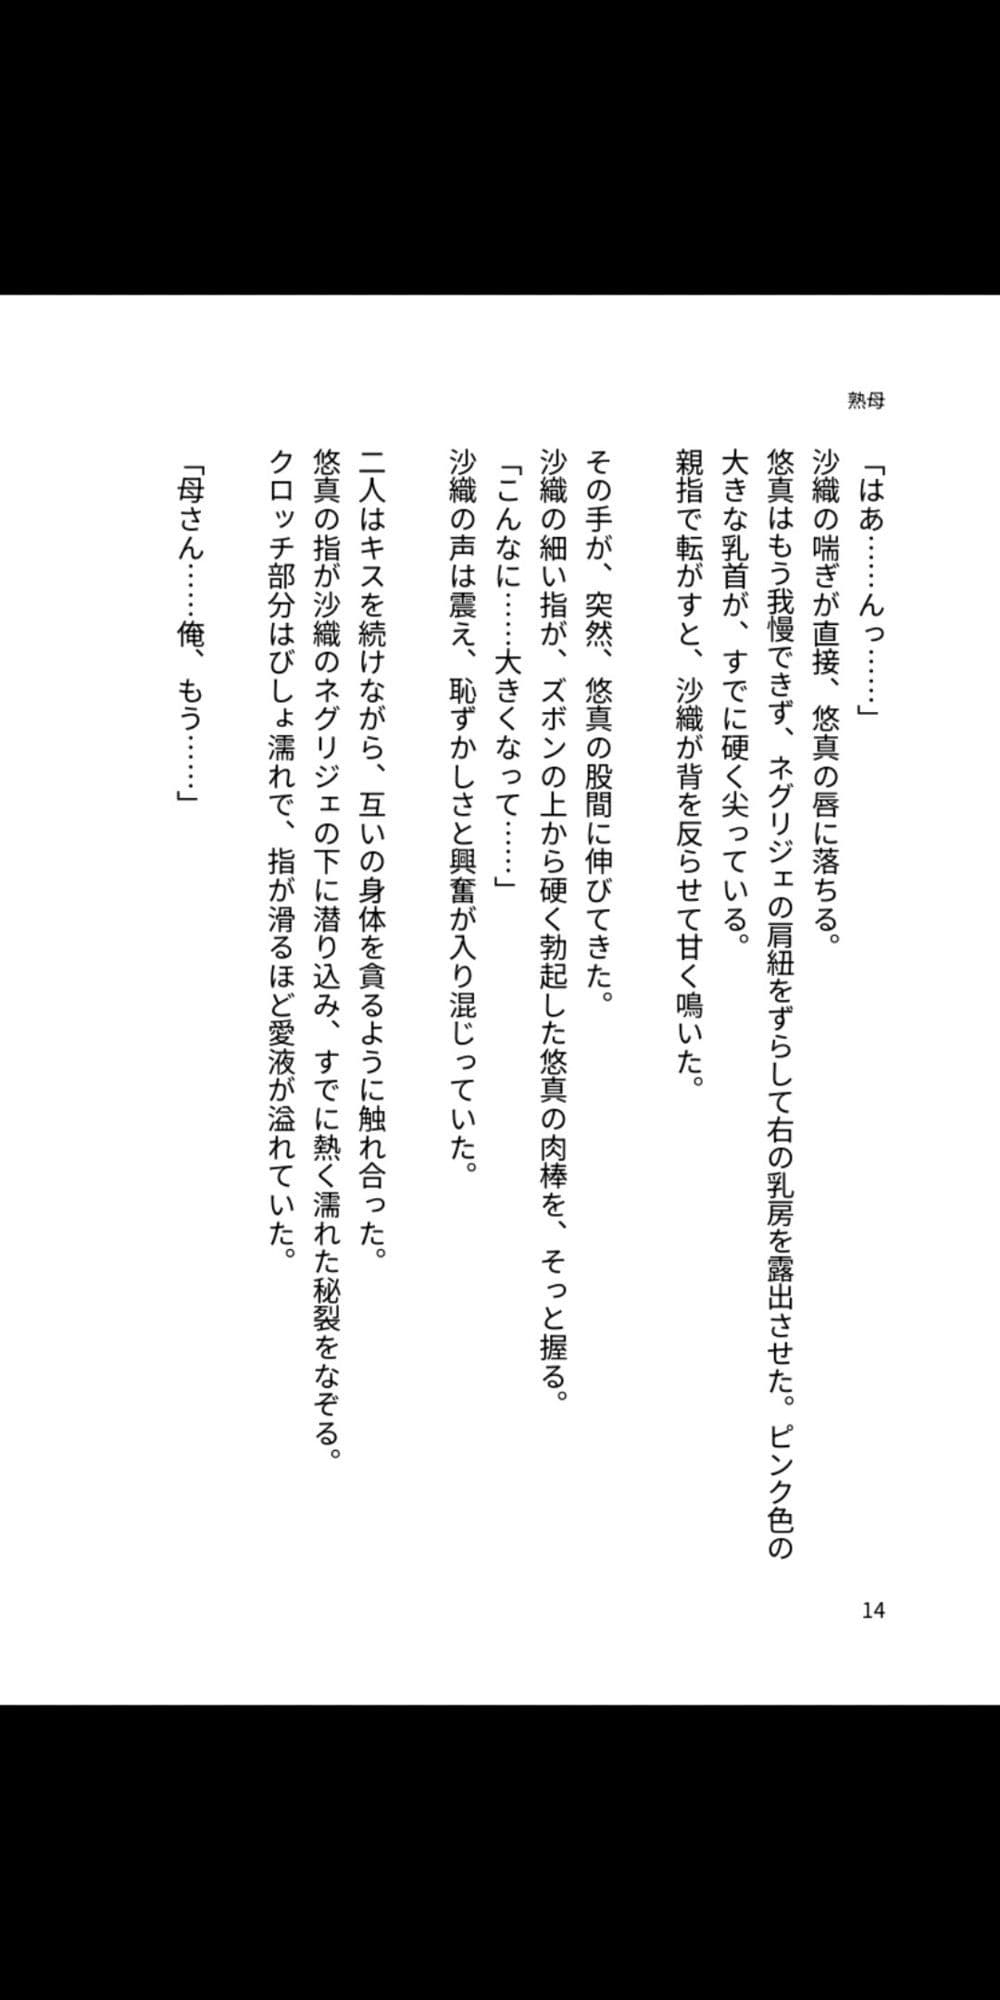 熟母
「はあ……んっ……」
沙織の喘ぎが直接、悠真の唇に落ちる。
悠真はもう我慢できず、ネグリジェの肩紐をずらして右の乳房を露出させた。ピンク色の
大きな乳首が、すでに硬く尖っている。
親指で転がすと、沙織が背を反らせて甘く鳴いた。
その手が、突然、悠真の股間に伸びてきた。
沙織の細い指が、ズボンの上から硬く勃起した悠真の肉棒を、そっと握る。
「こんなに……大きくなって……」
沙織の声は震え、恥ずかしさと興奮が入り混じっていた。
二人はキスを続けながら、互いの身体を貪るように触れ合った。
悠真の指が沙織のネグリジェの下に潜り込み、すでに熱く濡れた秘裂をなぞる。
クロッチ部分はびしょ濡れで、指が滑るほど愛液が溢れていた。
「母さん……俺、もう……」
14